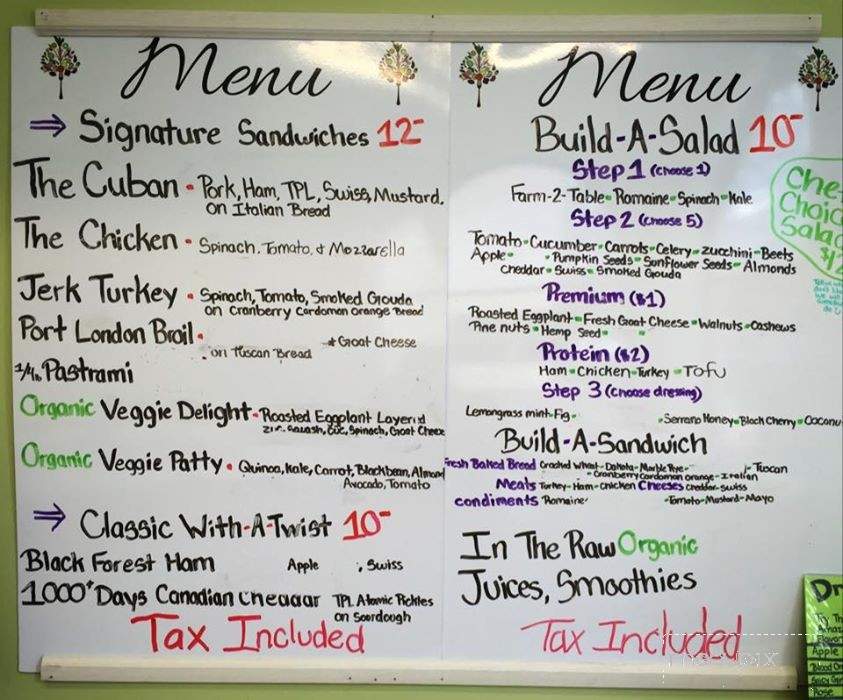 Menu
⇒ Signature Sandwiches 12-
The Cuban • Pork, Ham, TPL, Swiss, Mustard,
on Italian Bread
The Chicken • Spinach, Tomato, & Mozzarella
Jerk Turkey • Spinach, Tomato, Smoked Gouda
on Cranberry Cardomon Orange Bread
Port London Broil •
*Goat Cheese
on Tuscan Bread
1/4 lb Pastrami
Organic Veggie Delight - Roasted Eggplant Layerid
Squash, Cuc, Spinach, Goat Cheese
Organic Veggie Patty • Quinoa, Kale, Carrot, Blackbean, Almond
Avocado, Tomato
⇒ Classic With-A-Twist 10-
Black Forest Ham Apple , Swiss
1000+ Days Canadian Cheddar TPL Atomic Pickles
on Sourdough
Tax Included
Menu
Build-A-Salad 10-
Step 1 (Choose 1)
Farm-2-Table - Romaine - Spinach - Kale
Step 2 (Choose 5)
Tomato - Cucumber - Carrots - Celery - Zucchini - Beets
Apple - Pumpkin Seeds - Sunflower Seeds - Almonds
Cheddar - Swiss - Smoked Gouda
Premium ($1)
Roasted Eggplant - Fresh Goat Cheese - Walnuts - Cashews
Pine nuts - Hemp Seed -
Protein ($2)
Ham - Chicken - Turkey - Tofu
Step 3 (Choose dressing)
Lemongrass mint - Fig - - Serrano Honey - Black Cherry - Coconu
Build-A-Sandwich
Fresh Baked Bread Cracked Wheat - Dakota - Marble Rye - Tuscan
- Cranberry Cardomon Orange - Italian
Meats Turkey - Ham - Chicken Cheeses Cheddar - Swiss
Condiments Romaine - Tomato - Mustard - Mayo
In The Raw Organic
Juices, Smoothies
Tax Included
Che
Choic
Salad
$12
Dr
Try Th
Apple
Blood Or
Spicy Gin
Rose